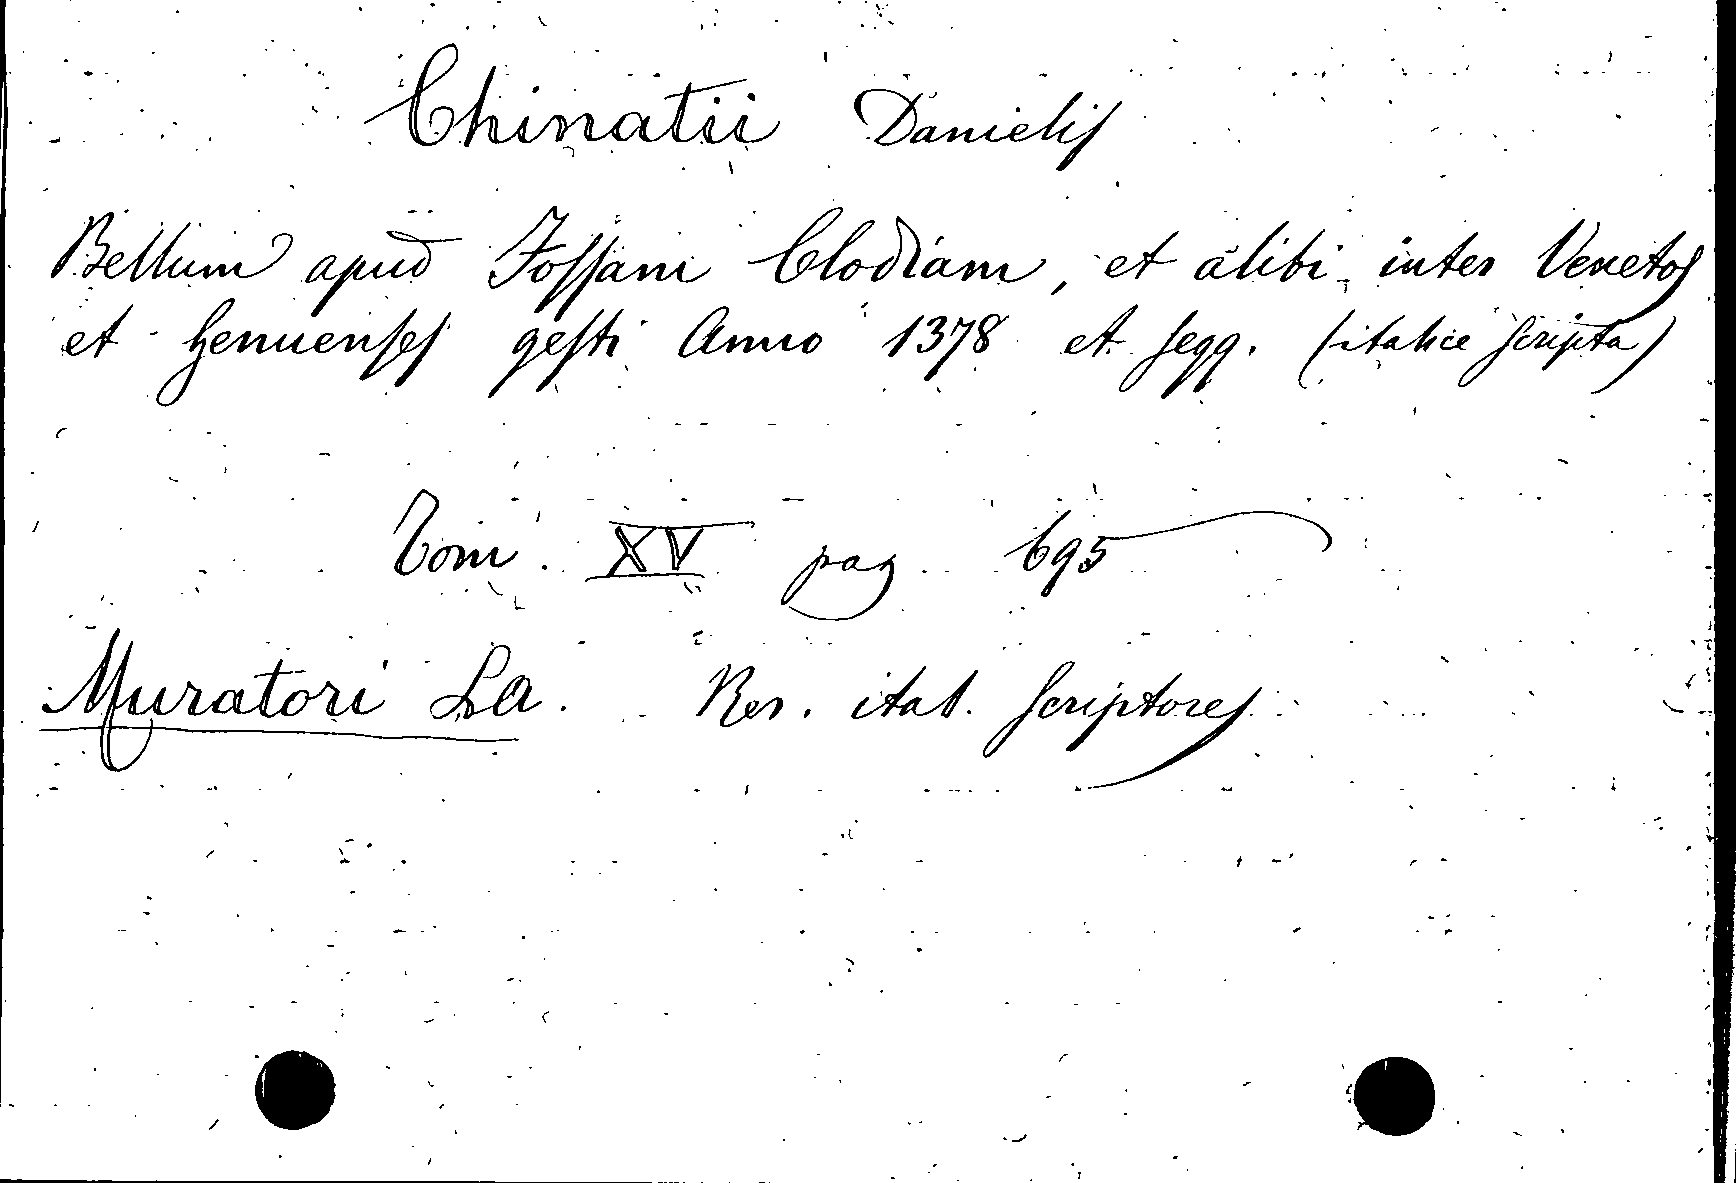 Chinatii Danielis
Bellum apud Fossam Clodiam, et alibi inter Venetos
et Genuenses gesti Anno 1378 et seqq. (italice scripta)
Tom. XV pag 695
Muratori LA. Rer. ital. scriptores